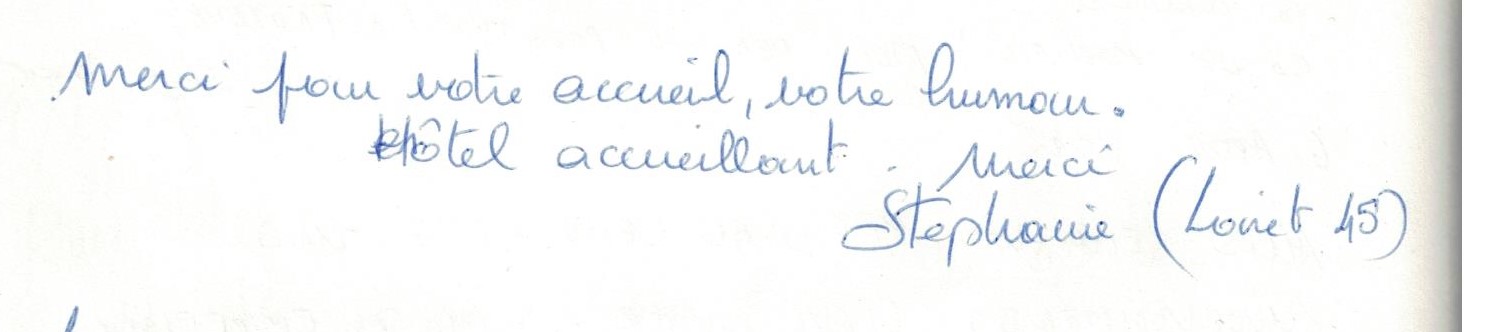 Merci pour votre accueil, votre humour.
hôtel accueillant. Merci
Stéphanie (Loiret 45)